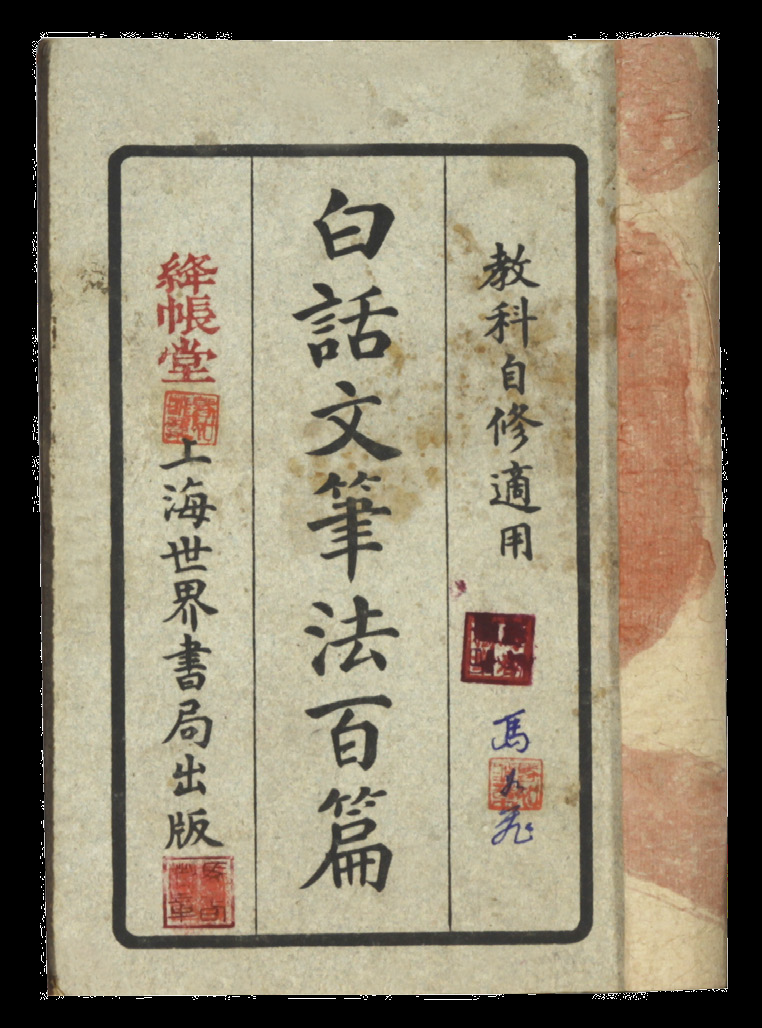 教科自修適用
馬
白話文筆法百篇
絳帳堂
上海世界書局出版